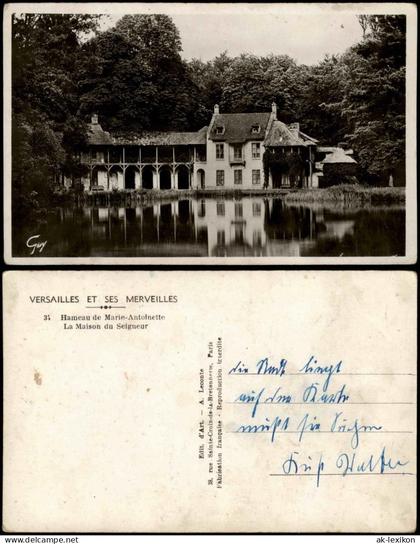 Guy
VERSAILLES ET SES MERVEILLES
34 Hameau de Marie-Antoinette
La Maison du Seigneur
Edit. d'Art. - A. Leconte
38, rue Sainte-Croix-de-la-Bretonnerie, Paris
Fabrication française - Reproduction interdite
die Stadt liegt
auf der Karte
mußt sie Suchen
Kuß Walter
ak-lexikon
© www.ak-lexikon.de